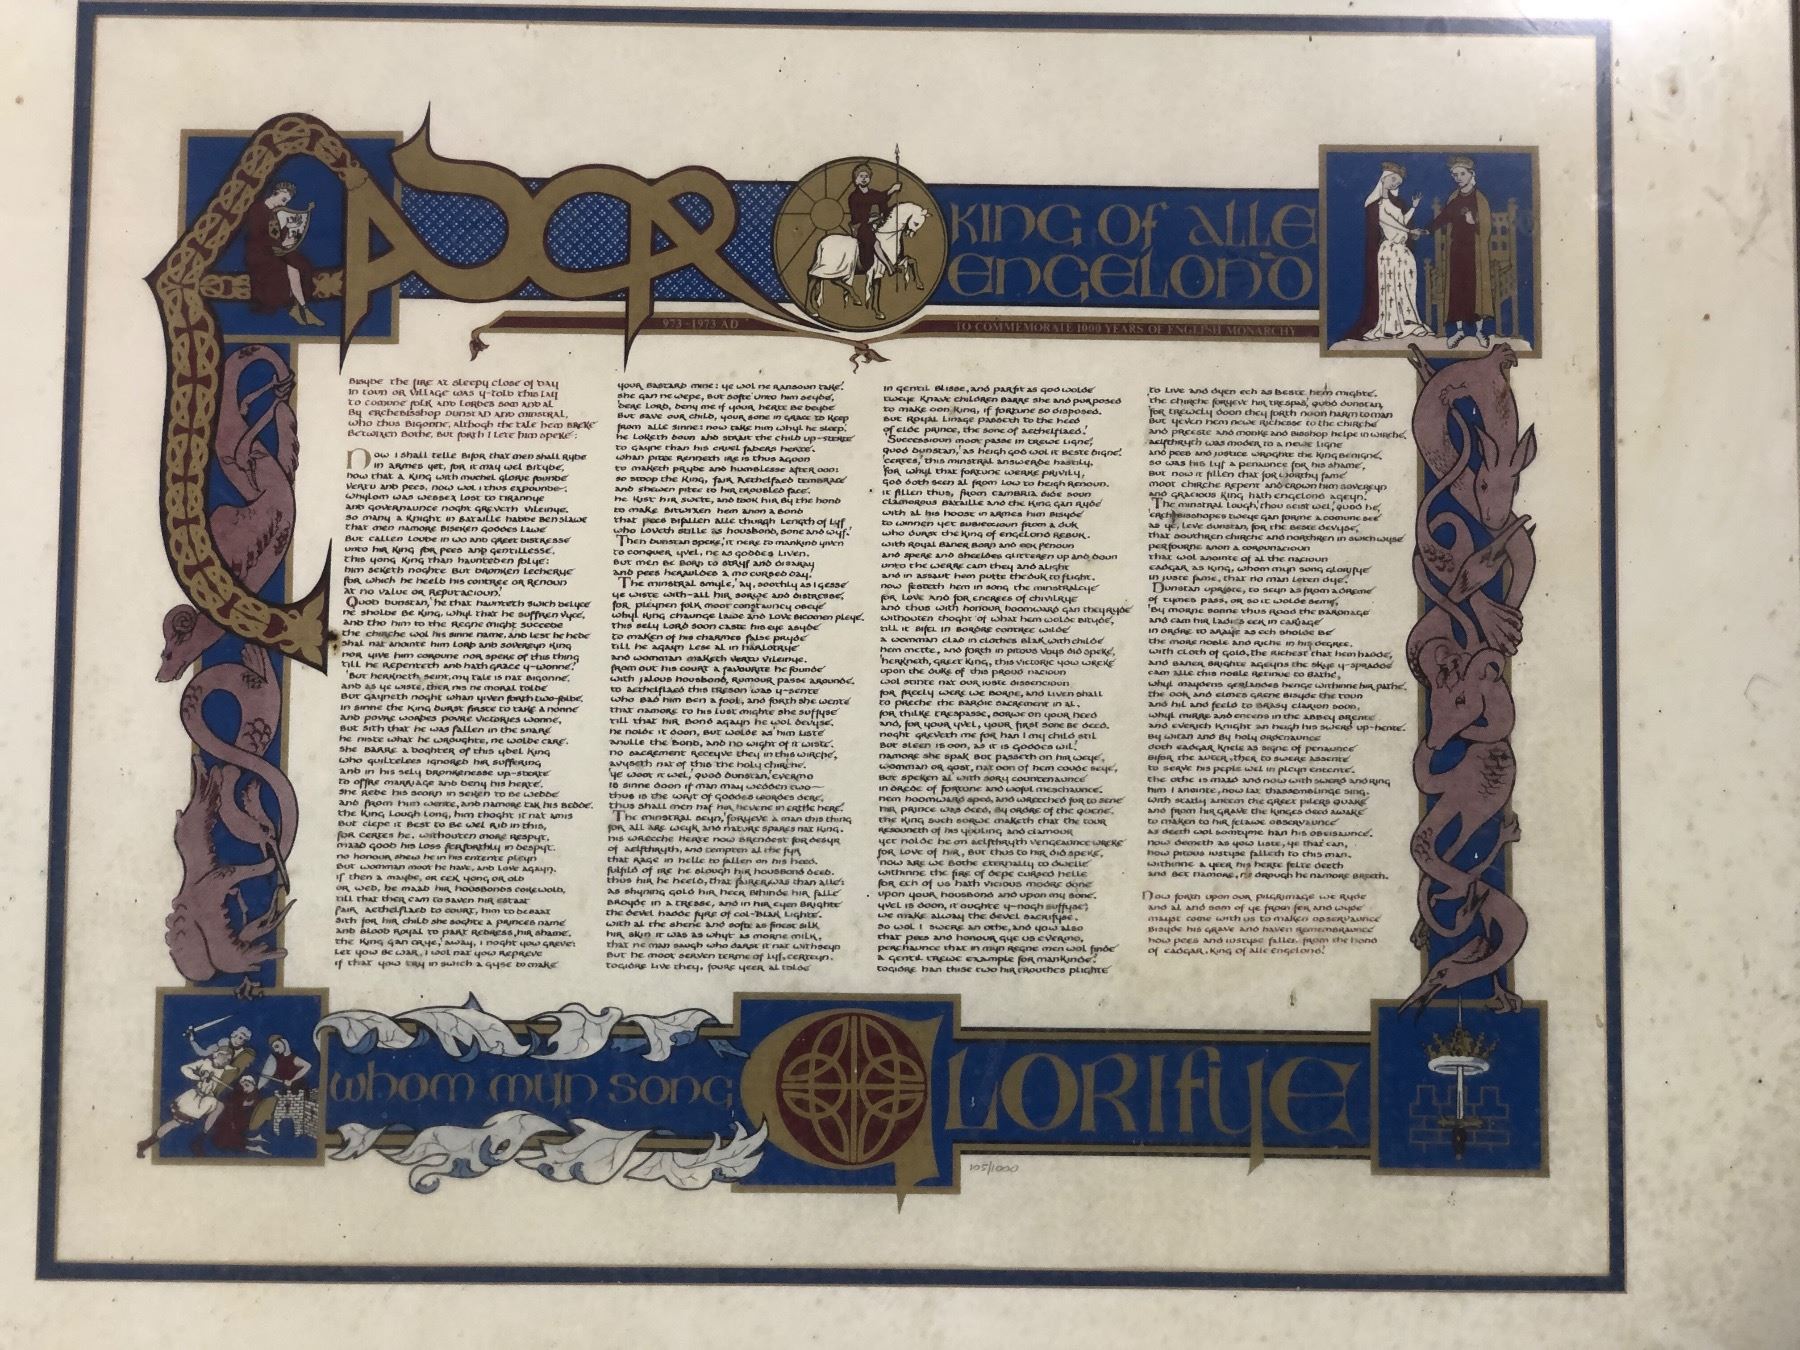 EADGAR
KING OF ALLE
ENGELOND
973-1973 AD
TO COMMEMORATE 1000 YEARS OF ENGLISH MONARCHY
Bisyde the fire at sleepy close of day
In toun or village was y-told this lay
To comune folk and lordes som and al
By Erchebisshop Dunstan and minstral,
who thus bigonne, although the tale hem breke
Betwixen bothe, but forth I lete him speke:
Now I shall telle bifor that men shall ryde
in armes yet, for it may wel bityde,
how that a King with muchel glorie founde
vertu and pees, now wol I thus expounde.
Whylom was Wessex lost to tirannye
and governaunce noght greveth vileinye.
So many a Knight in bataille hadde ben slawe
that men namore biseken Goddes lawe
But callen loude in wo and greet distresse
unto hir King for pees and gentillesse.
This yong King than haunteden folye:
him seketh noghte but dronken lecherye
for which he heeld his contree or renoun
at no value or reputacioun.
Quod Dunstan, 'he that haunteth swich delyce
ne sholde be King, whyl that he suffren vyce,
and tho him to the regne might succede
the chirche wol his sinne name, and lest he hede
shal nat anointe him lord and sovereyn King
nor yive him coroune nor spere of this thing
till he repenteth and hath grace y-wonne.'
'But herkneth seint, my tale is nat bigonne,
and as ye wiste, ther nis ne moral tolde
but gayneth noght whan yiven forth two-folde.
In sinne the King durst firste to take a nonne
and povre wordes povre victories wonne,
But sith that he was fallen in the snare
he niste what he wroughte, ne wolde care.
She barre a doghter of this ydel King
who quiltelees ignored hir suffering
and in his sely dronkenesse up-sterte
to offre marriage and deny his herte.
She rede his scorn in seken to be wedde
and from him wente, and namore tak his bedde.
The King lough long, him thoght it nat amis
But clepe it best to be wel rid in this,
for certes he, withouten more respyt,
maad good his loss ferforthly in despyt.
No honour shew he in his entente pleyn
But womman moot he have, and love again.
If then a mayde, or eek yong or old
or wed, he maad hir housbonds cokewold,
till that ther cam to saven hir estaat
fair Aethelflaed to court, him to debaat
sith for hir child she soghte a princes name
and blood royal to part redress, hir shame.
The King gan crye, 'away, I noght you greve:
let you be war, I wol nat you repreve
if that you try in swich a gyse to make
your bastard mine: ye wol ne ransoun take.'
She gan ne wepe, but softe unto him seyde,
'Dere Lord, deny me if your herte be deyde
But save our child, your sone in grace to keep
from alle sinne: now take him whyl he sleep.'
He loketh doun and strait the child up-sterte
to gayne than his cruel faders herte.
Whan pitee renneth ire is thus agoon
to maketh pryde and humblesse after oon:
so stoop the King, fair Aethelflaed tembrace
and shewen pitee to hir troubled face.
He kist hir swete, and took hir by the hond
to make bitwixen hem anon a bond
that pees bifallen alle thurgh length of lyf
who loveth stille as housbond, sone and wyf.'
Then Dunstan speke, 'it nere to mankind yiven
to conquer yvel, ne as goddes liven.
But men be born to stryf and disaray
and pees herauldes a mo cursed day.'
The minstral smyle, 'ay, soothly as I gesse
ye wiste with-all hir sorwe and distresse,
for pleynen folk moot constauncy obeye
whyl King chaunge lawe and love bicomen pleye.
This sely lord soon caste his eye asyde
to maken of his charmes false pryde
till he agayn lese al in harlotrye
and womman maketh vertu vileinye.
From out his court a favourite he founde
with jalous housbond, rumour passe arounde.
To Aethelflaed this treson was y-sente
who bad him ben a fool, and forth she wente
that namore to his lust mighte she suffyse
till that hir bond agayn he wol devyse.
He nolde it doon, but wolde as him liste
anulle the bond, and no wight of it wiste.
No sacrement receyve they in this wirche,
avyseth nat of this the holy chirche.
'Ye woot it wel,' quod Dunstan, 'evermo
is sinne doon if man may wedden two—
thus is the writ of Goddes wordes dere,
thus shall men naf hir hevene in erthe here.'
The minstral seyn, 'foryeve a man this thing
for all are weyk and nature spares nat King.
His wrecche herte now brendest for desyr
of Aelfthryth, and tempten al the fyr
that rage in helle to fallen on his heed.
fulfild of ire he slough hir housbond deed.
Thus hir he heeld, that fairer was than alle:
as shyning gold hir heer bihinde hir falle
broyde in a tresse, and in hir eyen brighte
the devel hadde fyre of col-blak lighte.
With al the shene and softe as finest silk
hir skin it was as whyt as morne milk,
that ne man saugh who darst it nat withseyn
But he moot serven terme of lyf, certeyn.
Togidre live they, foure yeer al tolde
in gentil blisse, and parfit as God wolde
tweye knave children barre she and purposed
to make oon King, if fortune so disposed.
But royal linage passeth to the heed
of elde prince, the sone of Aethelflaed.'
'Successioun moot passe in trewe ligne,'
quod Dunstan, 'as heigh God wol it beste digne.'
'Certes,' this minstral answerde hastily,
'for whyl that fortune werke privily,
God doth seen al from low to heigh renoun.
It fillen thus, from Cambria side soun
clamorous bataille and the King gan ryde
with al his hoost in armes him bisyde
to winnen yet subieccioun from a duk
who durst the King of Engelond rebuk.
With royal baner born and eek penoun
and spere and sheeldes glitteren up and doun
unto the werre cam they and alight
and in assaut hem putte the duk to flight.
Now festeth hem in song the minstralcye
for love and for enerees of chivilrye
and thus with honour hoomward gan they ryde
withouten thoght of what hem wolde bityde,
till it bifel in bordre contree wilde
a womman clad in clothes blak with childe
hem mette, and forth in pitous voys did speke,
'herkneth, greet King, this victorie you wreke
upon the duke of this proud nacioun
wol stinte nat our iuste dissencioun
for freely were we borne, and liven shall
to preche the bardic sacrement in al.
For thilke trespasse, sorwe on your heed
and, for your yvel, your first sone be deed.
Noght greveth me for han I my child stil
But sleen is oon, as it is Goddes wil.'
Namore she spak but passeth on hir weye,
womman or gost, nat oon of hem coude seye,
But speken al with sory countenaunce
in drede of fortune and woful meschaunce.
Hem hoomward sped, and wretched for to sene
hir prince was deed, by ordre of the quene.
The King such sorwe maketh that the tour
resouneth of his youling and clamour
yet nolde he on Aelfthryth vengeaunce wreke
for love of hir, but thus to hir did speke,
'now are we bothe eternally to dwelle
withinne the fire of depe cursed helle
for ech of us hath vicious mordre done
upon your housbond and upon my sone.
Yvel is doon, it oughte y-nogh suffyse,
we make alway the devel sacrifyse.
So wol I swere an othe, and you also
that pees and honour gye us evermo,
perchaunce that in myn regne men wol finde
a gentil trewe example for mankinde.'
Togidre han thise two hir trouthes plighte
to live and dyen ech as beste hem mighte.
'The chirche foryeve hir trespas,' quod Dunstan,
'for trewely doon they forth noon harm to man
But yeven hem newe richesse to the chirche
and preeste and monke and bisshop helpe in wirche.
Aelfthryth was moder to a newe ligne
and pees and justice wroghte the King benigne.
So was his lyf a penaunce for his shame,
But now it fillen that for worthy fame
moot chirche repent and crown him sovereyn
and gracious King hath Engelond ageyn.'
The minstral lough, 'thou seist wel,' quod he,
'Erchebisshopes tweye gan forme a comune see
as ye, leve Dunstan, for the beste devyse,
that southren chirche and northren in swich wyse
perfourne anon a corounacioun
that wol anointe of al the nacioun
Eadgar as King, whom myn song glorifye
in juste fame, that no man leten dye.'
Dunstan upriste, to seyn as from a dreme
of tymes pass, or so it wolde seme,
'By morne sonne thus rood the baronage
and cam hir ladies eek in cariage
in ordre to araye as ech sholde be
the more noble and riche in his degree.
With cloth of gold, the richest that hem hadde,
and baner brighte ageyns the skye y-spradde
cam alle this noble retinue to Bathe,
whyl maydens gerlandes henge withinne hir pathe.
The ook and elmes grene bisyde the toun
and hil and feeld to brasy clarion soun,
whyl mirre and encens in the abbey brente
and everich Knight an heigh his swerd up-hente.
By witan and by holy ordenaunce
doth Eadgar knele as signe of penaunce
bifor the auter, ther to swere assente
to serve his peple wel in pleyn entente.
The othe is maad and now with swerd and ring
him I anointe, now lat thassemblinge sing.
With statly antem the greet pilers quake
and from hir grave the kinges deed awake
to maken to hir felawe observaunce
as deeth wol somtyme han his obeisaunce.
Now demeth as you liste, ye that can,
how pitous iustyse falleth to this man.
Withinne a yeer his herte felte deeth
and bet namore, ne drough he namore breeth.
Now forth upon our pilgrimage we ryde
and al and som of ye from fer and wyde
mayst come with us to maken observaunce
bisyde his grave and haven remembraunce
how pees and iustyse fallen from the hond
of Eadgar, King of alle Engelond.'
whom myn song
GLORIFYE
105/1000